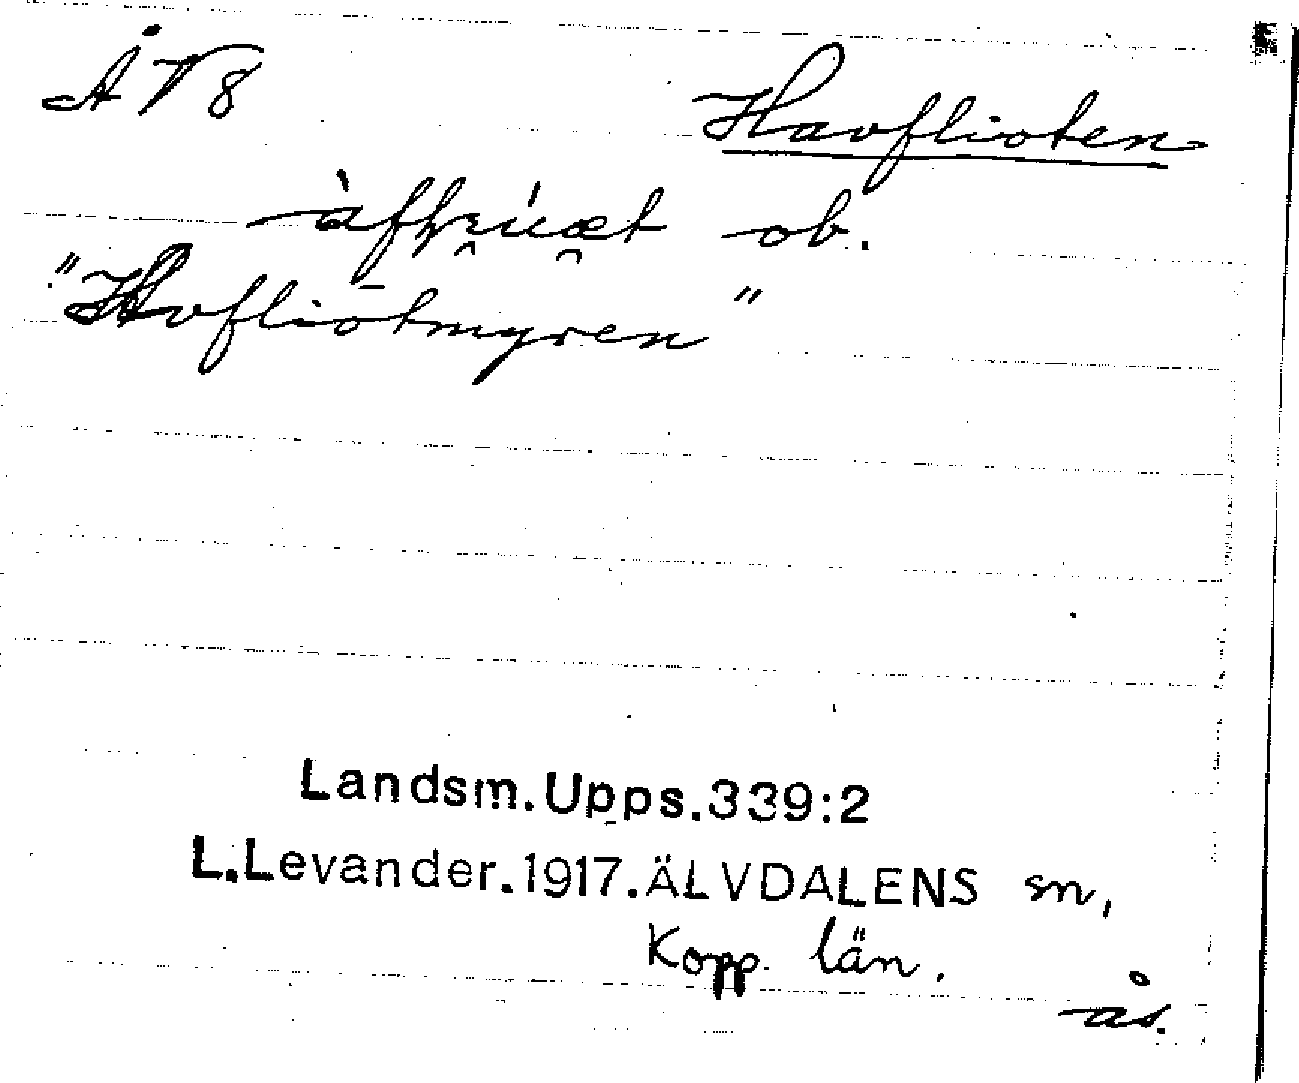 Å V 8
Havslioten
ob.
"Havsliotmyren"
Landsm. Upps. 339:2
L. Levander. 1917. ÄLVDALENS sn,
Kopp. län.
ås.